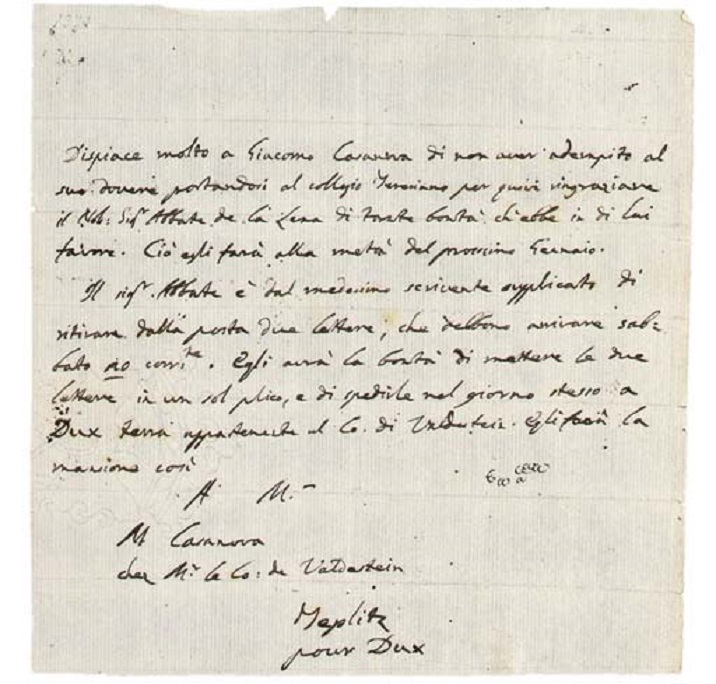 Dispiace molto a Giacomo Casanova di non aver adempito al
suo dovere portandosi al collegio Teresiano per quivi ringraziare
il Nob: Sigr Abbate de la Lena di tante bontà ch'ebbe in di lui
favore. Ciò egli farà alla metà del prossimo Gennaio.
Il sigr. Abbate è dal medesimo scrivente supplicato di
ritirare dalla posta due lettere, che debbono arrivare sab=
bato corrte. Egli avrà la bontà di mettere le due
lettere in un sol plico, e di spedirle nel giorno stesso a
Dux terra appartenente al Co. di Valdestein. Egli farà la
mansione così
A M.
M Casanova
chez Mr le Co: de Valdestein
Teplitz
pour Dux